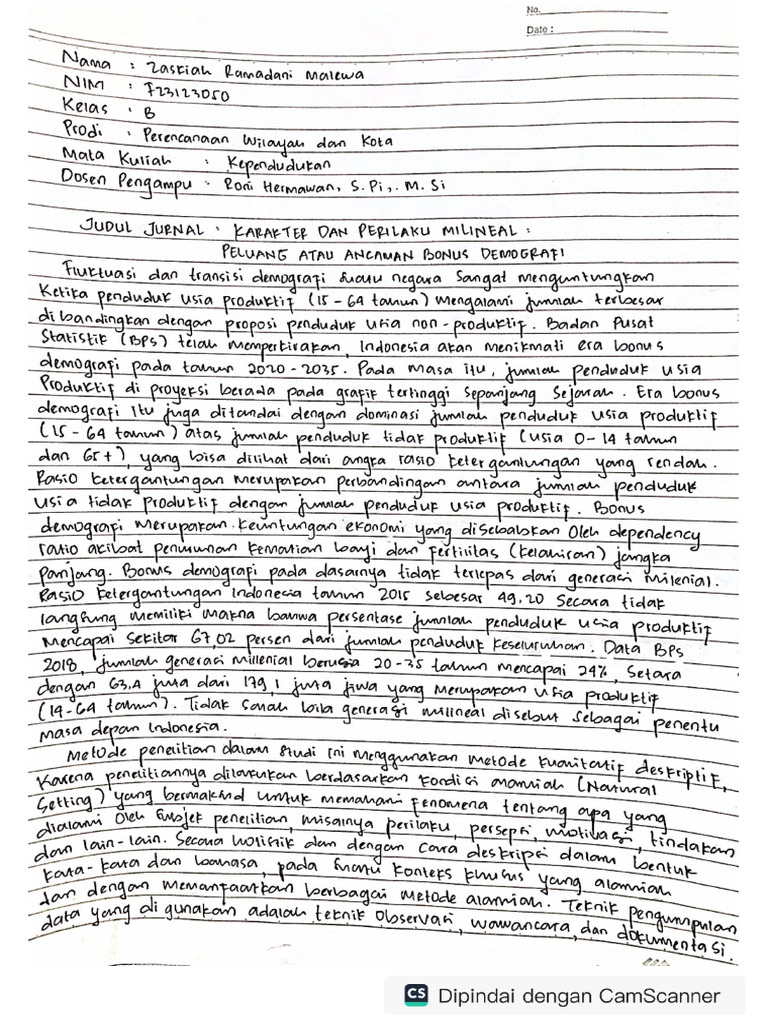 No.
Date :
Nama : Zaskiah Ramadani Malewa
NIM : F23123050
Kelas : B
Prodi : Perencanaan Wilayah dan Kota
Mata Kuliah : Kependudukan
Dosen Pengampu : Roni Hermawan, S.Pi,. M.Si
JUDUL JURNAL : KARAKTER DAN PERILAKU MILINEAL :
PELUANG ATAU ANCAMAN BONUS DEMOGRAFI
Fluktuasi dan transisi demografi suatu negara sangat menguntungkan
Ketika penduduk usia produktif (15 - 64 tahun) mengalami jumlah terbesar
di bandingkan dengan proposi penduduk usia non-produktif. Badan Pusat
Statistik (BPS) telah memperkirakan, Indonesia akan menikmati era bonus
demografi pada tahun 2020-2035. Pada masa itu, jumlah penduduk usia
Produktif di proyeksi berada pada grafik tertinggi sepanjang sejarah. Era bonus
demografi itu juga ditandai dengan dominasi jumlah penduduk usia produktif
(15 - 64 tahun) atas jumlah penduduk tidak produktif (usia 0-14 tahun
dan 65+), yang bisa dilihat dari angka rasio ketergantungan yang rendah.
Rasio ketergantungan merupakan perbandingan antara jumlah penduduk
usia tidak produktif dengan jumlah penduduk usia produktif. Bonus
demografi merupakan keuntungan ekonomi yang disebabkan oleh dependency
ratio akibat penurunan kematian bayi dan fertilitas (kelahiran) jangka
panjang. Bonus demografi pada dasarnya tidak terlepas dari generasi milenial.
Rasio ketergantungan Indonesia tahun 2015 sebesar 49,20 secara tidak
langsung memiliki makna bahwa persentase jumlah penduduk usia produktif
Mencapai sekitar 67,02 persen dari jumlah penduduk keseluruhan. Data BPS
2018, jumlah generasi millenial berusia 20-35 tahun mencapai 24%, setara
dengan 63,4 juta dari 179,1 juta jiwa yang merupakan usia produktif
(14-64 tahun). Tidak salah bila generasi milineal disebut sebagai penentu
masa depan Indonesia.
Metode penelitian dalam studi ini menggunakan metode kualitatif deskriptif,
Karena penelitiannya dilakukan berdasarkan kondisi alamiah (Natural
Setting) yang bermaksud untuk memahami fenomena tentang apa yang
dialami oleh subjek penelitian, misalnya perilaku, persepsi, motivasi, tindakan
dan lain-lain. Secara holistik dan dengan cara deskripsi dalam bentuk
kata-kata dan bahasa, pada suatu konteks khusus yang alamiah
dan dengan memanfaatkan berbagai metode alamiah. Teknik pengumpulan
data yang di gunakan adalah teknik observasi, wawancara, dan dokumentasi.
CS Dipindai dengan CamScanner